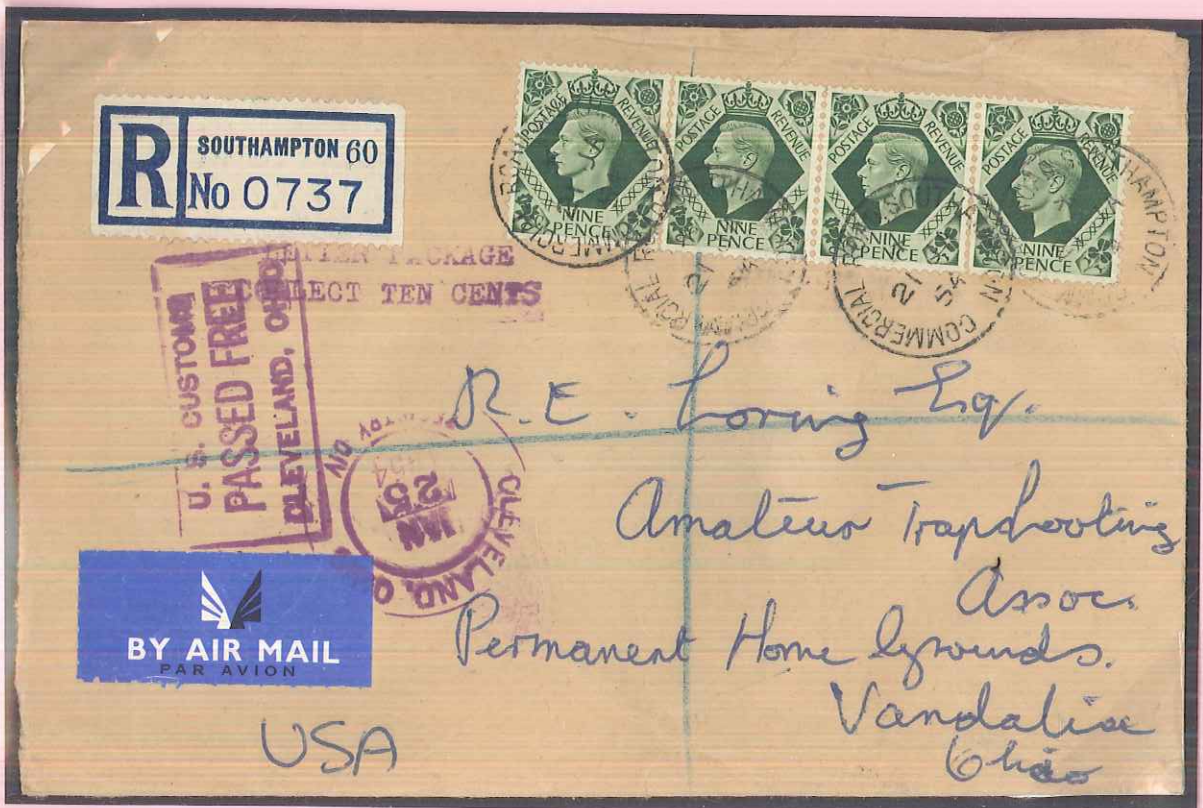 R
SOUTHAMPTON 60
No 0737
POSTAGE REVENUE
NINE PENCE
POSTAGE REVENUE
NINE PENCE
POSTAGE REVENUE
NINE PENCE
POSTAGE REVENUE
NINE PENCE
COMMERCIAL
21
COMMERCIAL
21
54
HAMPTON
LETTER PACKAGE
COLLECT TEN CENTS
U. S. CUSTOMS
PASSED FREE
CLEVELAND, OHIO
CLEVELAND, O
JAN
25
R. E. Loring Esq.
Amateur Trapshooting
Assoc.
Permanent Home Grounds.
Vandalia
Ohio
BY AIR MAIL
PAR AVION
USA